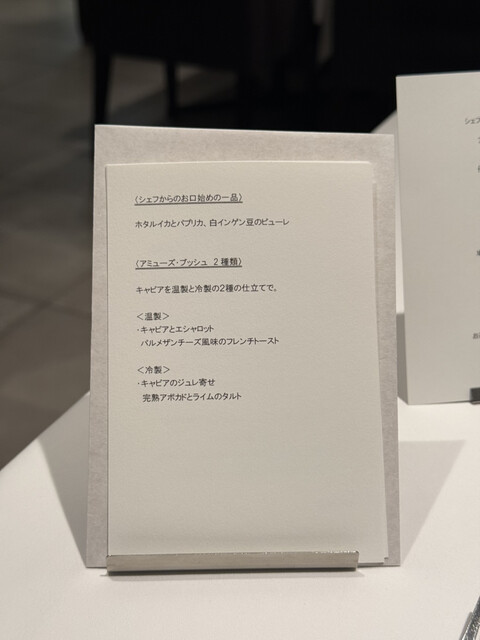 〈シェフからのお口始めの一品〉
ホタルイカとパプリカ、白インゲン豆のピューレ
〈アミューズ・ブッシュ 2種類〉
キャビアを温製と冷製の2種の仕立てで。
＜温製＞
・キャビアとエシャロット
パルメザンチーズ風味のフレンチトースト
＜冷製＞
・キャビアのジュレ寄せ
完熟アボカドとライムのタルト
シェフ